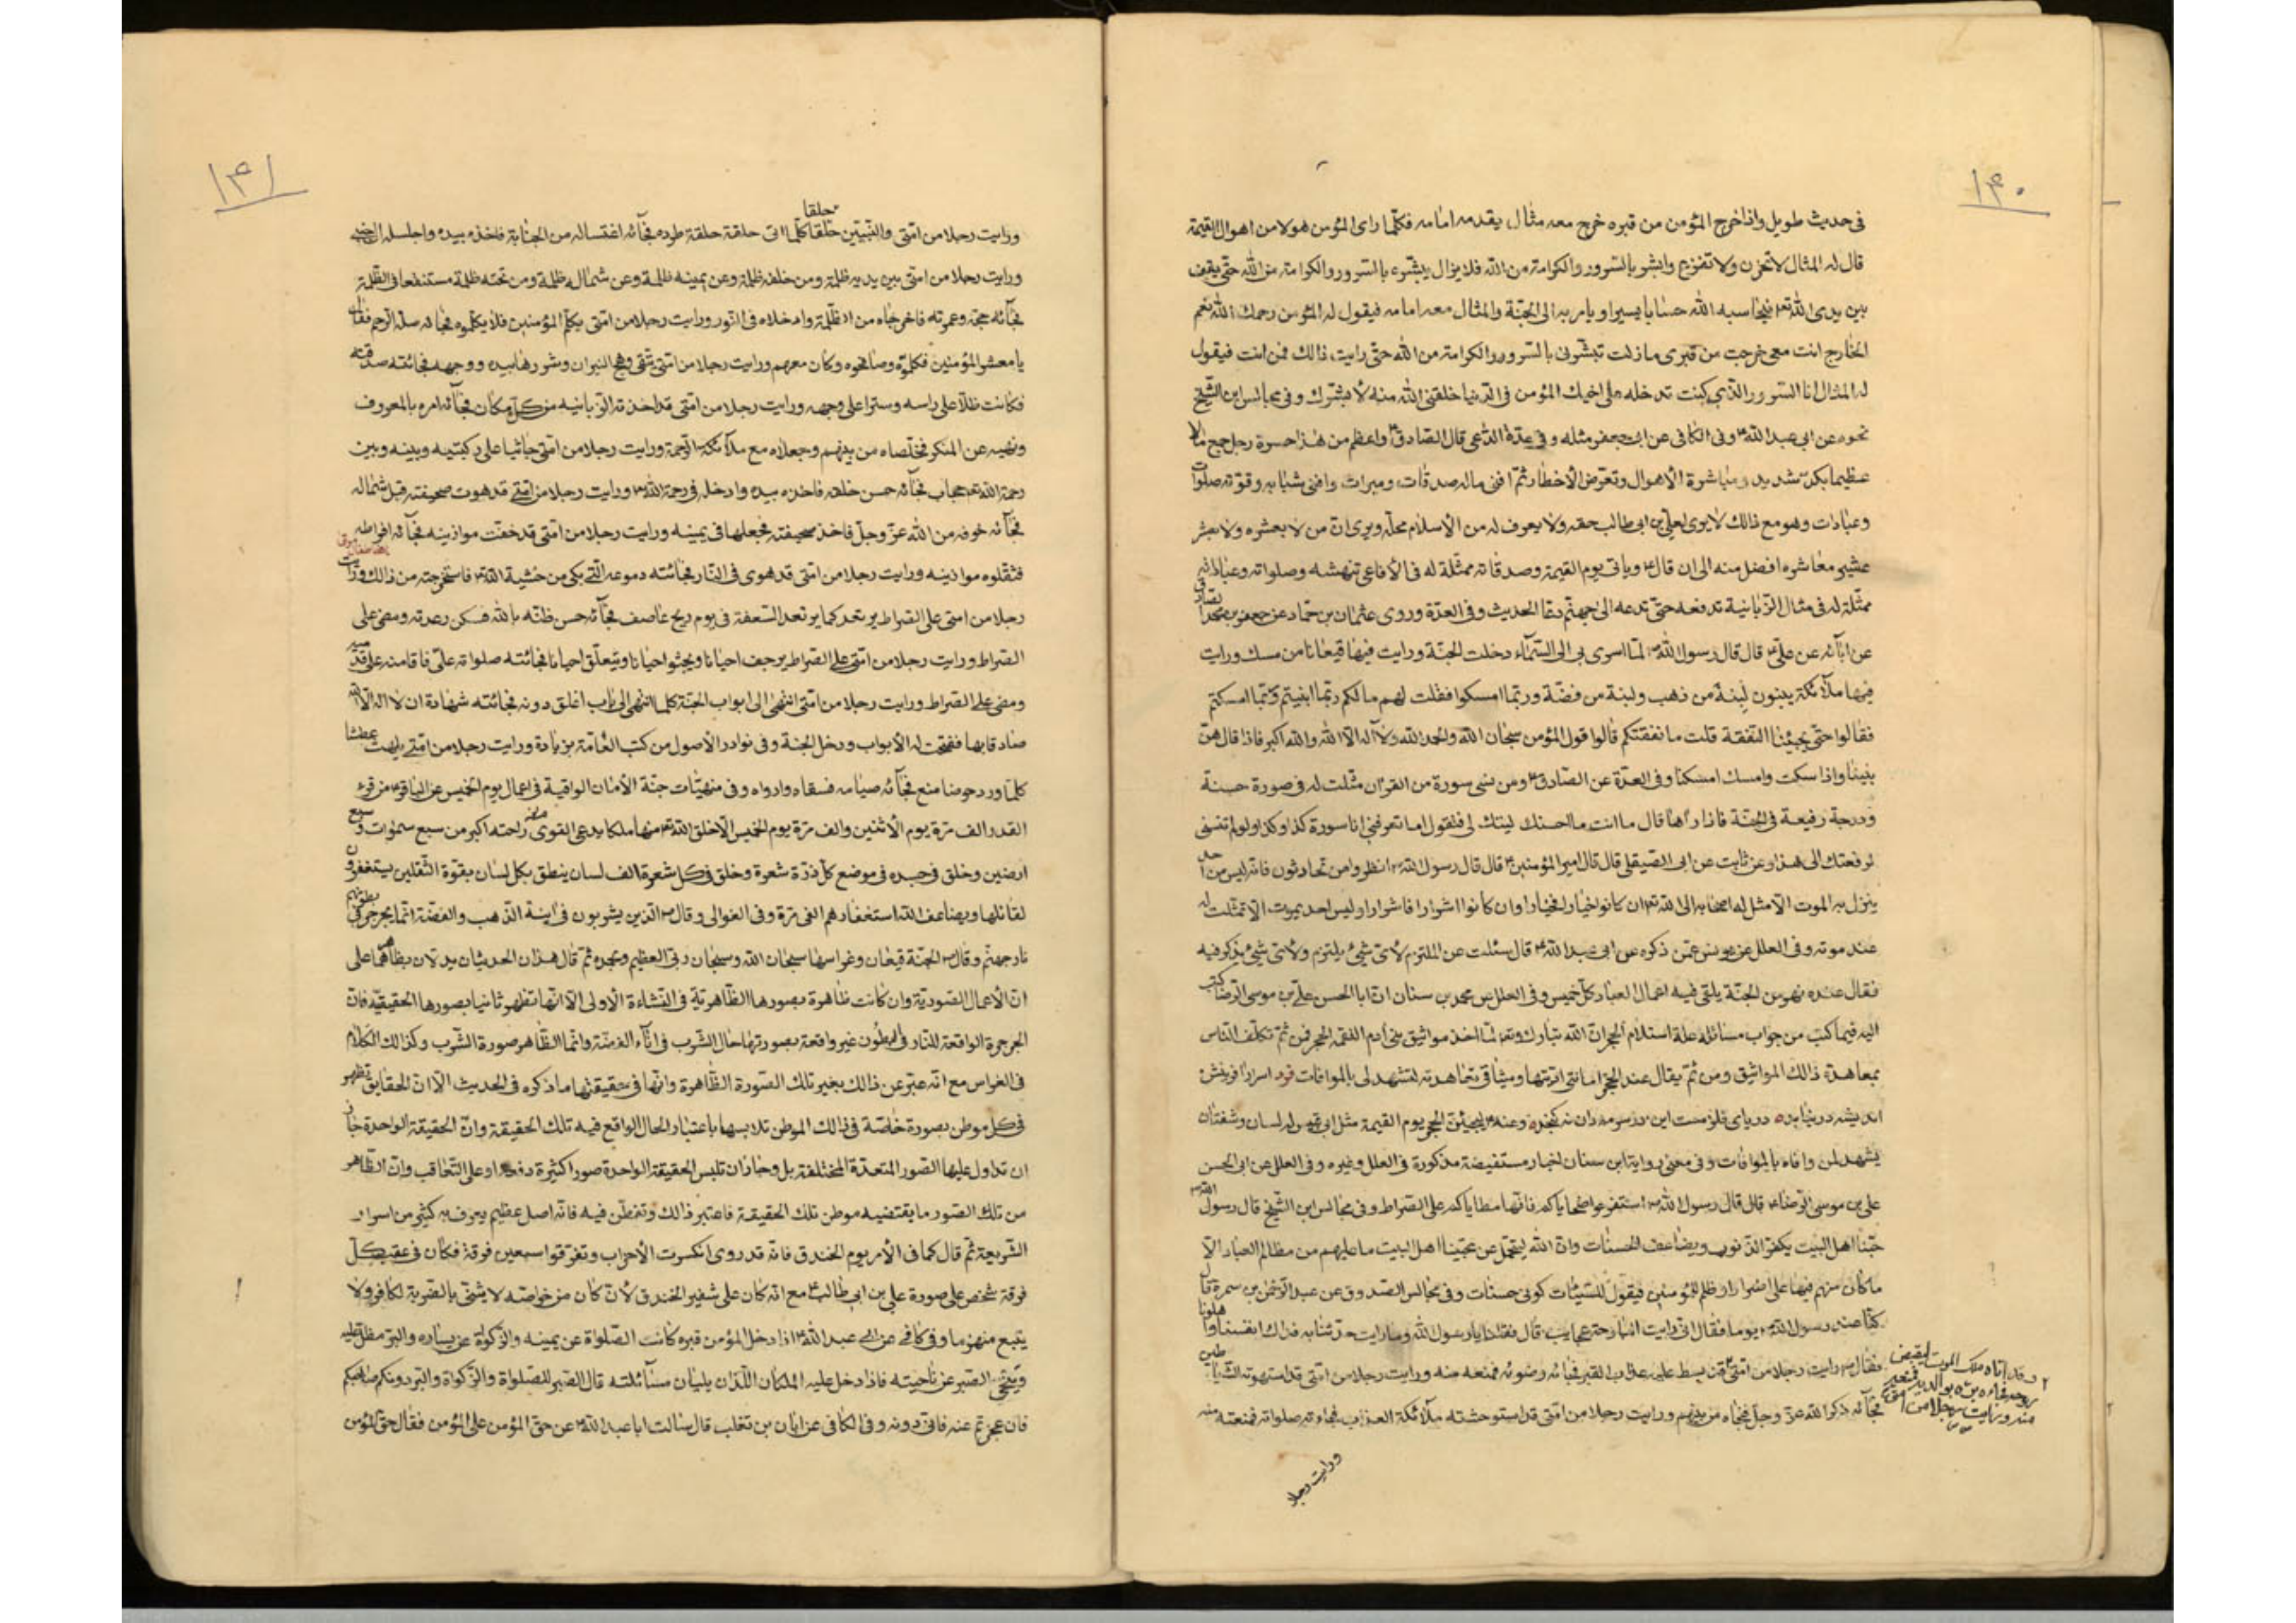 ۱۴۰
فی حدیث طویل واذا خرج المؤمن من قبره خرج معه مثال یقدمه امامه فکلّما رای المؤمن هولا من اهوال القیمة
قال له المثال لا تحزن ولا تفزع وابشر بالسّرور والکرامة من اللّه فلا یزال یبشّره بالسرور والکرامة من اللّه حتّی یقف
بین یدی اللّه تعم فیحاسبه اللّه حسابا یسیرا ویامر به الی الجنّة والمثال معه امامه فیقول له المؤمن رحمك اللّه نعم
الخارج انت معی خرجت من قبری ما زلت تبشّرنی بالسّرور والکرامة من اللّه حتّی رایت ذالك فمن انت فیقول
له المثال انا السّرور الّذی کنت تدخله علی اخیك المؤمن فی الدّنیا خلقنی اللّه منه لأبشّرك وفی مجالس ابن الشّیخ
نحوه عن ابی عبد اللّه ع وفی الکافی عن ابی جعفر مثله وفی عدّة الدّاعی قال الصّادق ع واعظم من هذا حسرة رجل جمع مالا
عظیما بکدّ شدید ومباشرة الأهوال وتعرّض الأخطار ثمّ افنی ماله صدقات ومبراث وافنی شبابه وقوّته صلوات
وعبادات وهو مع ذالك لا یری لعلیّ بن ابی طالب حقه ولا یعرف له من الأسلام محلّه ویری انّ من لا بعشره ولا بعشر
عشیر معاشره افضل منه الی ان قال ع ویاتی یوم القیمة وصدقاته ممثّلة له فی الأفاعی تنهشه وصلواته وعباداته
ممثّلة له فی مثال الزّبانیة تدفعه حتّی تدعه الی جهنّم دعّا الحدیث وفی العدّة وروی عثمان بن حمّاد عن جعفر بن محمّد الصّادق
عن ابآئه عن علیّ ع قال قال رسول اللّه ص لمّا اسری بی الی السّمآء دخلت الجنّة ورایت فیها قیعانا من مسك ورایت
فیها ملآئکة یبنون لبنة من ذهب ولبنة من فضّة وربّما امسکوا فقلت لهم ما لکم ربّما ابنیتم وربّما امسکتم
فقالوا حتّی یجیئنا النّفقة قلت ما نفقتکم قالوا قول المؤمن سبحان اللّه والحمد للّه ولا آله الّا اللّه واللّه اکبر فاذا قال هنّ
بنینا واذا سکت وامسك امسکنا وفی العدّة عن الصّادق ع ومن نسی سورة من القران مثّلت له فی صورة حسنة
ودرجة رفیعة فی الجنّة فاذا راها قال ما انت ما احسنك لیتك لی فتقول اما تعرفنی انا سورة کذا وکذا ولو لم تنسنی
لرفعتك الی هذا وعن ثابت عن ابی الصّیقل قال قال امیر المؤمنین ع قال قال رسول اللّه ص انظروا من تحادثون فانّه لیس من احد
ینزل به الموت الّا مثل له اصحابه الی اللّه تعم ان کانوا خیارا فخیارا وان کانوا اشرارا فاشرارا ولیس احد یموت الّا تمثّلت له
عند موته وفی العلل عن یونس عمّن ذکره عن ابی عبد اللّه ع قال سئلت عن الملتزم لأیّ شیء یلتزم ولأیّ شیء یذکر فیه
فقال عنده نهر من الجنّة یلقی فیه اعمال العباد کلّ خمیس وفی العلل عن محمد بن سنان انّ ابا الحسن علی بن موسی الرّضا کتب
الیه فیما کتب من جواب مسائله علة استلام الحجر انّ اللّه تبارك وتعالی لمّا اخذ مواثیق بنی آدم التقمه الحجر فمن ثمّ تکلّف النّاس
بمعاهدة ذالك المواثیق ومن ثمّ یقال عند الحجر امانتی ادّیتها ومیثاقی تعاهدته لتشهد لی بالموافات فرد اسرار آفرینش
اندیشه در نیابد دریای قلزمست این در سومه دان نه گنجد وعنه ع لیجیئنّ الحجر یوم القیمة مثل ابی قبیس له لسان وشفتان
یشهد لمن وافاه بالموافات وفی معنی روایة ابن سنان اخبار مستفیضة مذکورة فی العلل وغیره وفی العلل عن ابی الحسن
علی بن موسی الرّضا ع قال قال رسول اللّه ص استفرهوا ضحایاکم فانّها مطایاکم علی الصّراط وفی مجالس ابن الشّیخ قال رسول اللّه ص
حبّنا اهل البیت یکفّر الذّنوب ویضاعف الحسنات وانّ اللّه لیتحمّل عن محبّینا اهل البیت ما علیهم من مظالم العباد الّا
ما کان منهم فیها علی اضرار وظلم للمؤمنین فیقول للسّیئات کونی حسنات وفی مجالس الصّدوق عن عبد الرّحمن بن سمرة قال
کنّا عند رسول اللّه ص یوما فقال انّی رایت البارحة عجایب قال فقلنا یا رسول اللّه وما رایت حدّثنا به فداك انفسنا واهلونا
فقال ص رایت رجلا من امّتی قد بسط علیه عذاب القبر فجائه وضوئه فمنعه منه ورایت رجلا من امّتی قد استهوته الشّیاطین
فجآئه ذکر اللّه عزّ وجلّ فنجاه من بینهم ورایت رجلا من امّتی قد استوحشته ملآئکة العذاب فجائه صلواته فمنعته منه
وقد اتاه ملك الموت لیقبض
روحه فجاءه برّه بوالدیه فمنعه
منه ورایت رجلا من امّتی
ورایت رجلا
۱۴۱
حلقا
ورایت رجلا من امّتی والنّبیّین حلقا کلّما اتی حلقة حلقة طرده فجآئه اغتساله من الجنابة فاخذه بیده واجلسه الی جنبی
ورایت رجلا من امّتی بین یدیه ظلمة ومن خلفه ظلمة وعن یمینه ظلمة وعن شماله ظلمة ومن تحته ظلمة مستنقعا فی الظّلمة
فجآئه حجّه وعمرته فاخرجاه من الظّلمة وادخلاه فی النّور ورایت رجلا من امّتی یکلّم المؤمنین فلا یکلّموه فجائه صلة الرّحم فقال
یا معشر المؤمنین فکلّموه وصافحوه وکان معهم ورایت رجلا من امّتی یتّقی وهج النیران وشررها بیده ووجهه فجائته صدقته
فکانت ظلّا علی راسه وسترا علی وجهه ورایت رجلا من امّتی قد اخذته الزّبانیه من کلّ مکان فجآئه امره بالمعروف
ونهیه عن المنکر فخلّصاه من بینهم وجعلاه مع ملآئکة الرّحمة ورایت رجلا من امّتی جاثیا علی رکبتیه وبینه وبین
رحمة اللّه تعم حجاب فجآئه حسن خلقه فاخذه بیده وادخله فی رحمة اللّه ورایت رجلا من امّتی قد هوت صحیفته قبل شماله
فجآئه خوفه من اللّه عزّ وجلّ فاخذ صحیفته فجعلها فی یمینه ورایت رجلا من امّتی قد خفّت موازینه فجآئه افراطه
فثقّلوه موازینه ورایت رجلا من امّتی قد هوی فی النّار فجائته دموعه الّتی بکی من خشیة اللّه فاستخرجته من ذالك ورایت
رجلا من امّتی علی الصّراط یرتعد کما یرتعد السّعفة فی یوم ریح عاصف فجآئه حسن ظنّه باللّه فسکن رعدته ومضی علی
الصّراط ورایت رجلا من امّتی علی الصّراط یرجف احیانا ویجثو احیانا ویتعلّق احیانا فجائته صلواته علیّ فاقامته علی قدمیه
ومضی علی الصّراط ورایت رجلا من امّتی انتهی الی ابواب الجنّة کلما انتهی الی باب اغلق دونه فجائته شهادة ان لا اله الّا اللّه
صادقا بها ففتحت له الأبواب ودخل الجنة وفی نوادر الأصول من کتب العامّة بزیادة ورایت رجلا من امّتی یلهث عطشا
کلّما ورد حوضا منع فجآئه صیامه فسقاه وارواه وفی منهیّات جنّة الأمان الواقیة فی اعمال یوم الخمیس عن الباقر ع من قرء
القدر الف مرّة یوم الأثنین والف مرّة یوم الخمیس الّا خلق اللّه تعم منها ملکا یدعی القوی راحته اکبر من سبع سموات وسبع
ارضین وخلق فی جسده فی موضع کلّ ذرّة شعرة وخلق فی کلّ شعرة الف لسان ینطق بکل لسان بقوّة الثّقلین یستغفرون
لقائلها ویضاعف اللّه استغفارهم الفی مرّة وفی الغوالی وقال ص الّذین یشربون فی انیة الذّهب والفضّة انّما یجرجر فی بطونهم
نار جهنّم وقال ص الجنّة قیعان وغراسها سبحان اللّه وسبحان ربّی العظیم وبحمده ثمّ قال هذان الحدیثان یدلّان بظاهرهما علی
انّ الأعمال الصّوریّة وان کانت ظاهرة بصورها الظّاهریّة فی النّشاءة الأولی الّا انّها تظهر ثانیا بصورها الحقیقیّة فانّ
الجرجرة الواقعة للنّار فی البطون غیر واقعة بصورتها حال الشّرب فی انآء الفضّة وانّما الظّاهر صورة الشّرب وکذالك الکلام
فی الغراس مع انّه عبّر عن ذالك بغیر تلك الصّورة الظّاهرة وانّها فی حقیقتها ما ذکره فی الحدیث الّا انّ الحقایق تظهر
فی کلّ موطن بصورة خاصّة فی ذالك الموطن تلابسها باعتبار الحال الواقع فیه تلك الحقیقة وانّ الحقیقة الواحدة جاز
ان تداول علیها الصّور المتعدّدة المختلفة بل وجاز ان تلبس الحقیقة الواحدة صورا کثیرة دفعة او علی التّعاقب وانّ الظّاهر
من تلك الصّور ما یقتضیه موطن تلك الحقیقة فاعتبر ذالك وتفطّن فیه فانّه اصل عظیم یعرف به کثیر من اسرار
الشّریعة ثمّ قال کما فی الأمر یوم الخندق فانّه قد روی انکسرت الأحزاب وتفرّقوا سبعین فرقة فکان فی عقیب کلّ
فرقة شخص علی صورة علی بن ابی طالب ع مع انّه کان علی شفیر الخندق لأنّ کان من خواصّه لا یثنّی بالضّربة لکافر ولا
یتبع منهزما وفی کافی عن ابی عبد اللّه ع اذا دخل المؤمن قبره کانت الصّلواة عن یمینه والزّکواة عن یساره والبرّ مظلّ علیه
ویتنحّی الصّبر عن ناحیته فاذا دخل علیه الملکان اللّذان یلیان مسآئلته قال الصّبر للصّلواة والزّکواة والبرّ دونکم صاحبکم
فان عجزتم عنه فانّی دونه وفی الکافی عن ابان بن تغلب قال سالت ابا عبد اللّه ع عن حقّ المؤمن علی المؤمن فقال حقّ المؤمن